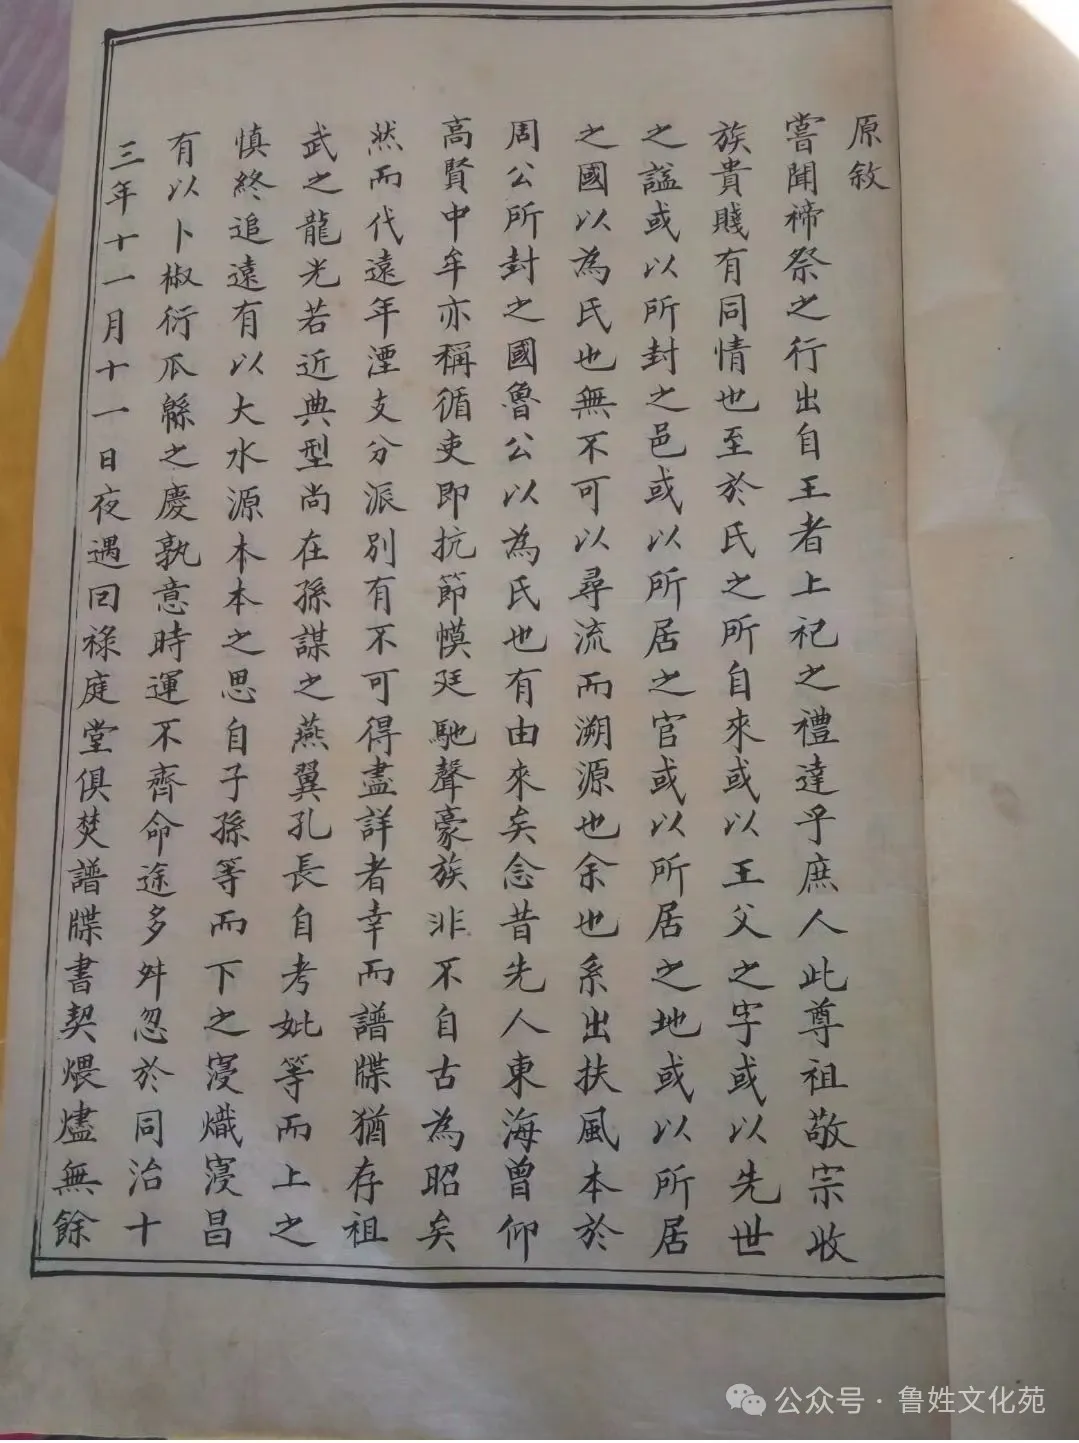 原敘
嘗聞禘祭之行出自王者上祀之禮達乎庶人此尊祖敬宗收
族貴賤有同情也至於氏之所自來或以王父之字或以先世
之謚或以所封之邑或以所居之官或以所居之地或以所居
之國以為氏也無不可以尋流而溯源也余也系出扶風本於
周公所封之國魯公以為氏也有由來矣念昔先人東海曾仰
高賢中牟亦稱循吏即抗節慔廷馳聲豪族非不自古為昭矣
然而代遠年湮支分派別有不可得盡詳者幸而譜牒猶存祖
武之龍光若近典型尚在孫謀之燕翼孔長自考妣等而上之
慎終追遠有以大水源木本之思自子孫等而下之寖熾寖昌
有以卜椒衍瓜緜之慶孰意時運不齊命途多舛忽於同治十
三年十一月十一日夜遇回祿庭堂俱焚譜牒書契煨燼無餘
公众号·鲁姓文化苑